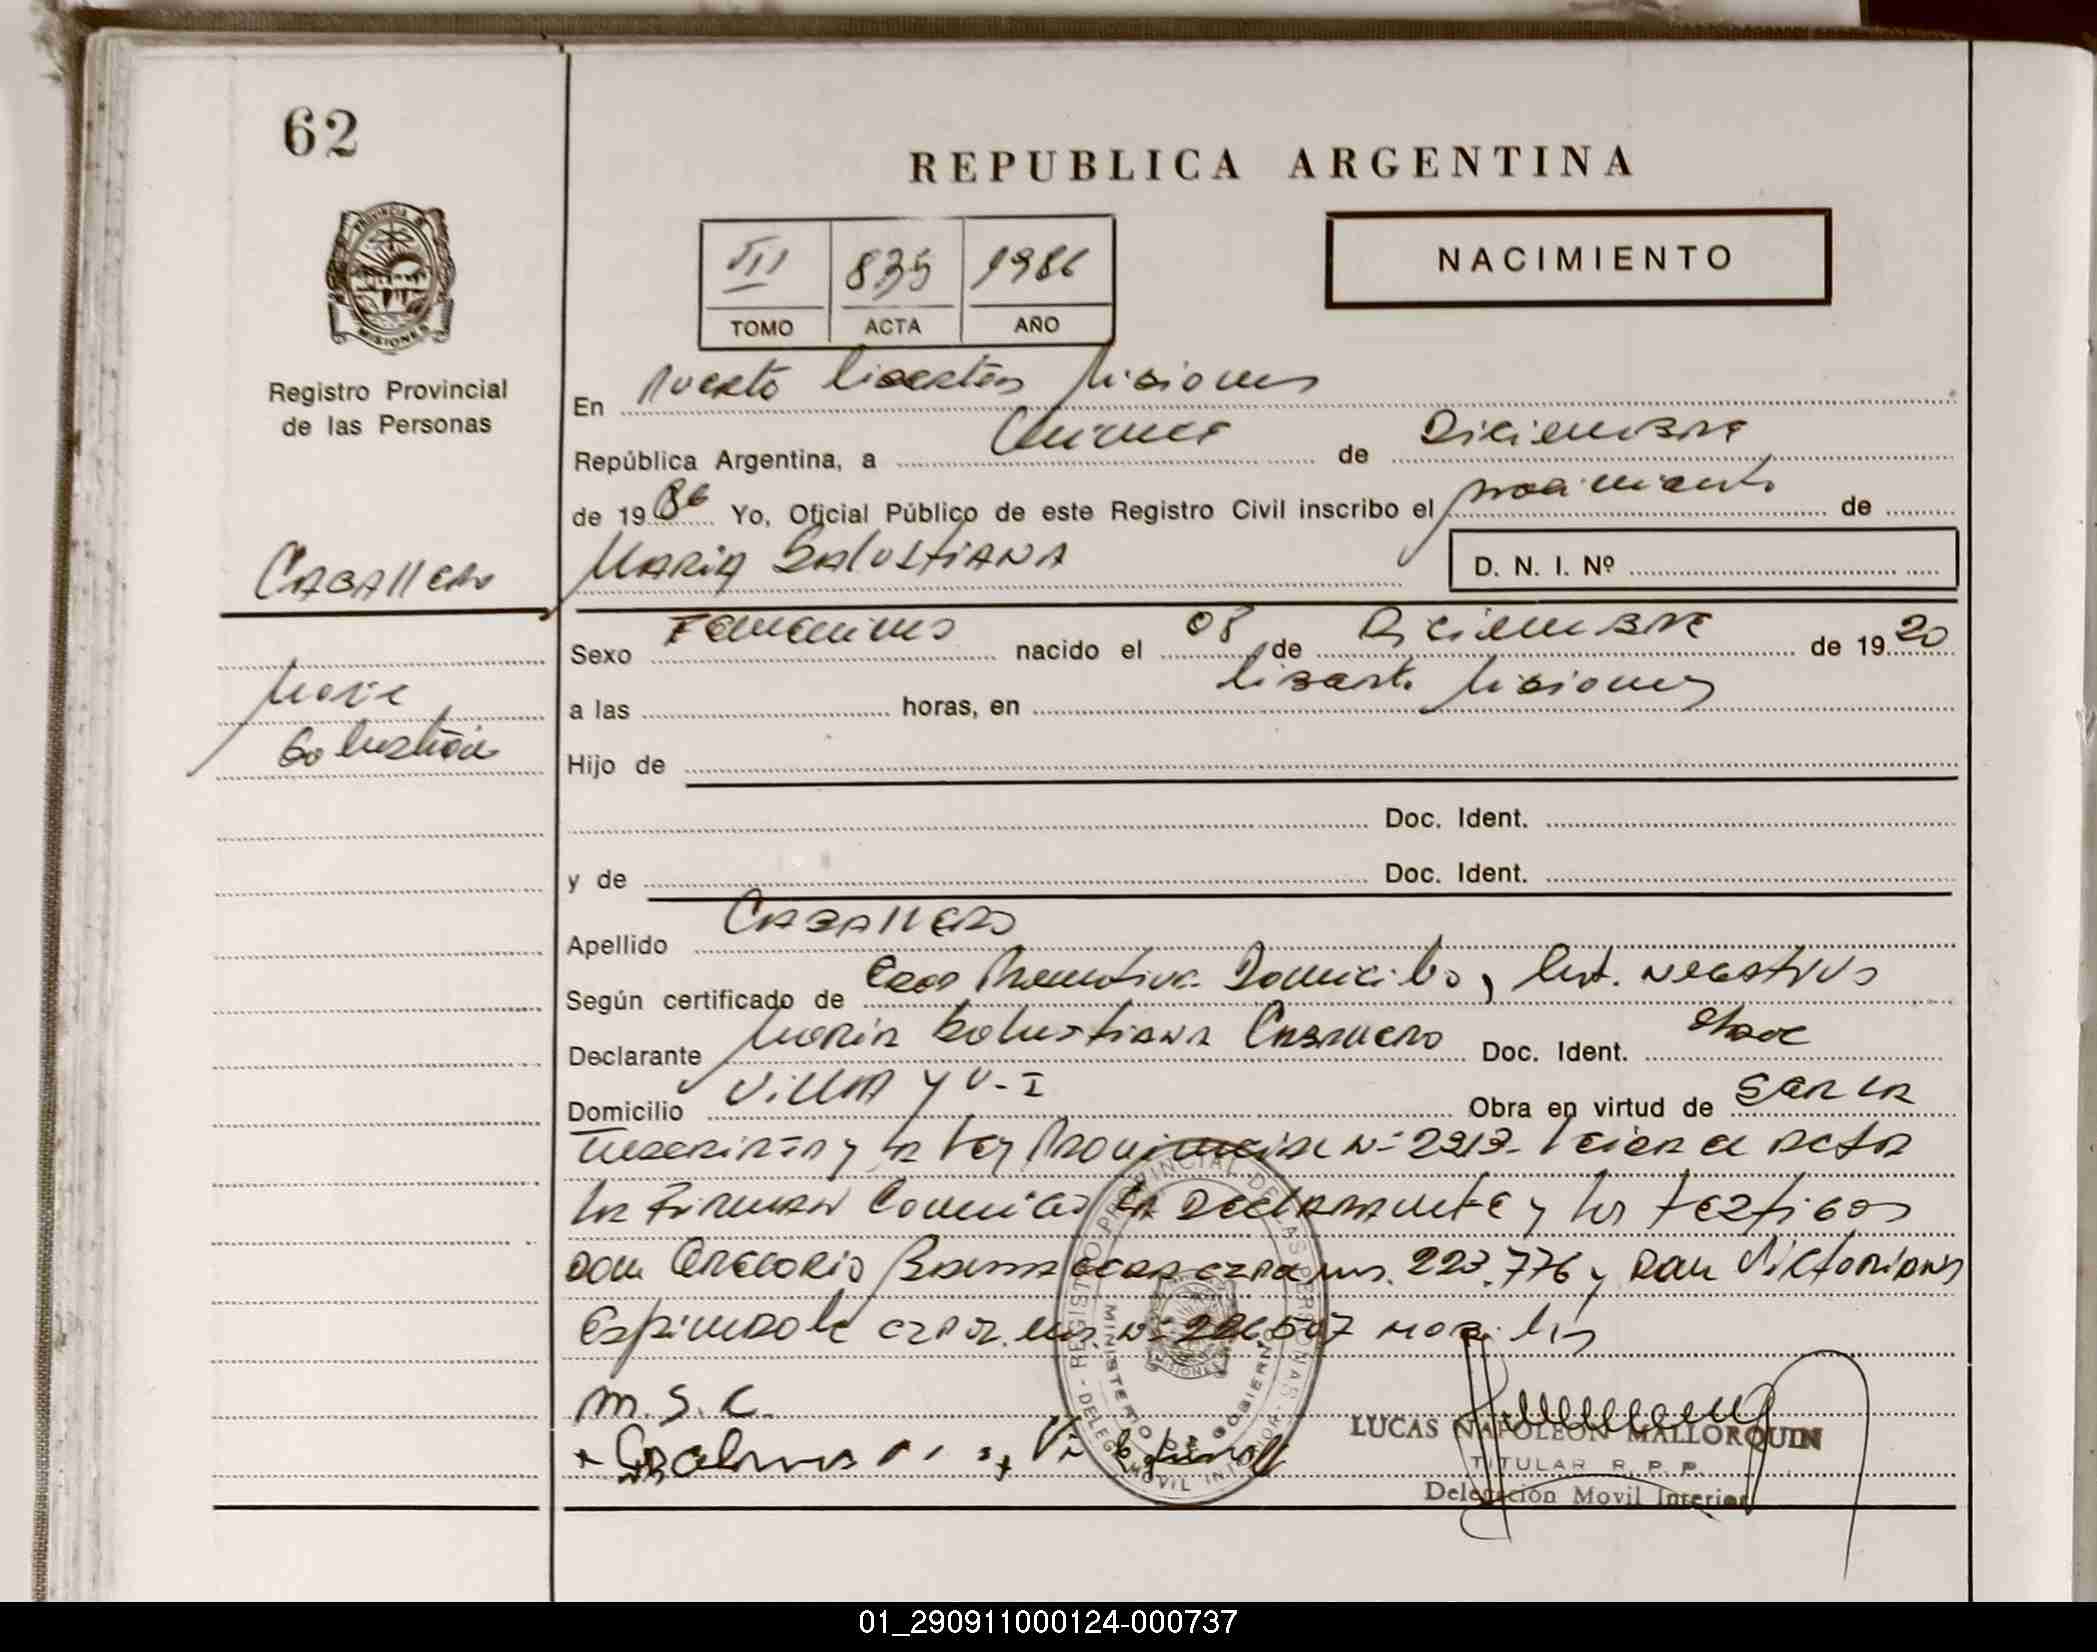 62
REPUBLICA ARGENTINA
PROVINCIA DE
MISIONES
Registro Provincial
de las Personas
III 835 1986
TOMO ACTA AÑO
NACIMIENTO
En Puerto Libertad Misiones
República Argentina, a Quince de Diciembre
de 1986 Yo, Oficial Público de este Registro Civil inscribo el nacimiento de
Caballero
Maria Salustiana D. N. I. Nº
Sexo Femenino nacido el 08 de Diciembre de 1920
Maria
Salustiana
a las horas, en Libertad Misiones
Hijo de
Doc. Ident.
y de Doc. Ident.
Apellido Caballero
Según certificado de Domicilio, Cert. Negativo
Declarante Maria Salustiana Caballero Doc. Ident.
Domicilio Villa Obra en virtud de
y la Ley Provincial Nº Leida el Acta
la Firman Conmigo la Declarante y los testigos
Don Gregorio 223.776 y Don Victoriano
Espindola
m. S. C.
REGISTRO PROVINCIAL DE LAS PERSONAS - DELEG. MOVIL INTERIOR -
MINISTERIO DE GOBIERNO
LUCAS NAPOLEON MALLORQUIN
TITULAR R. P. P.
Delegación Movil Interior
01_290911000124-000737